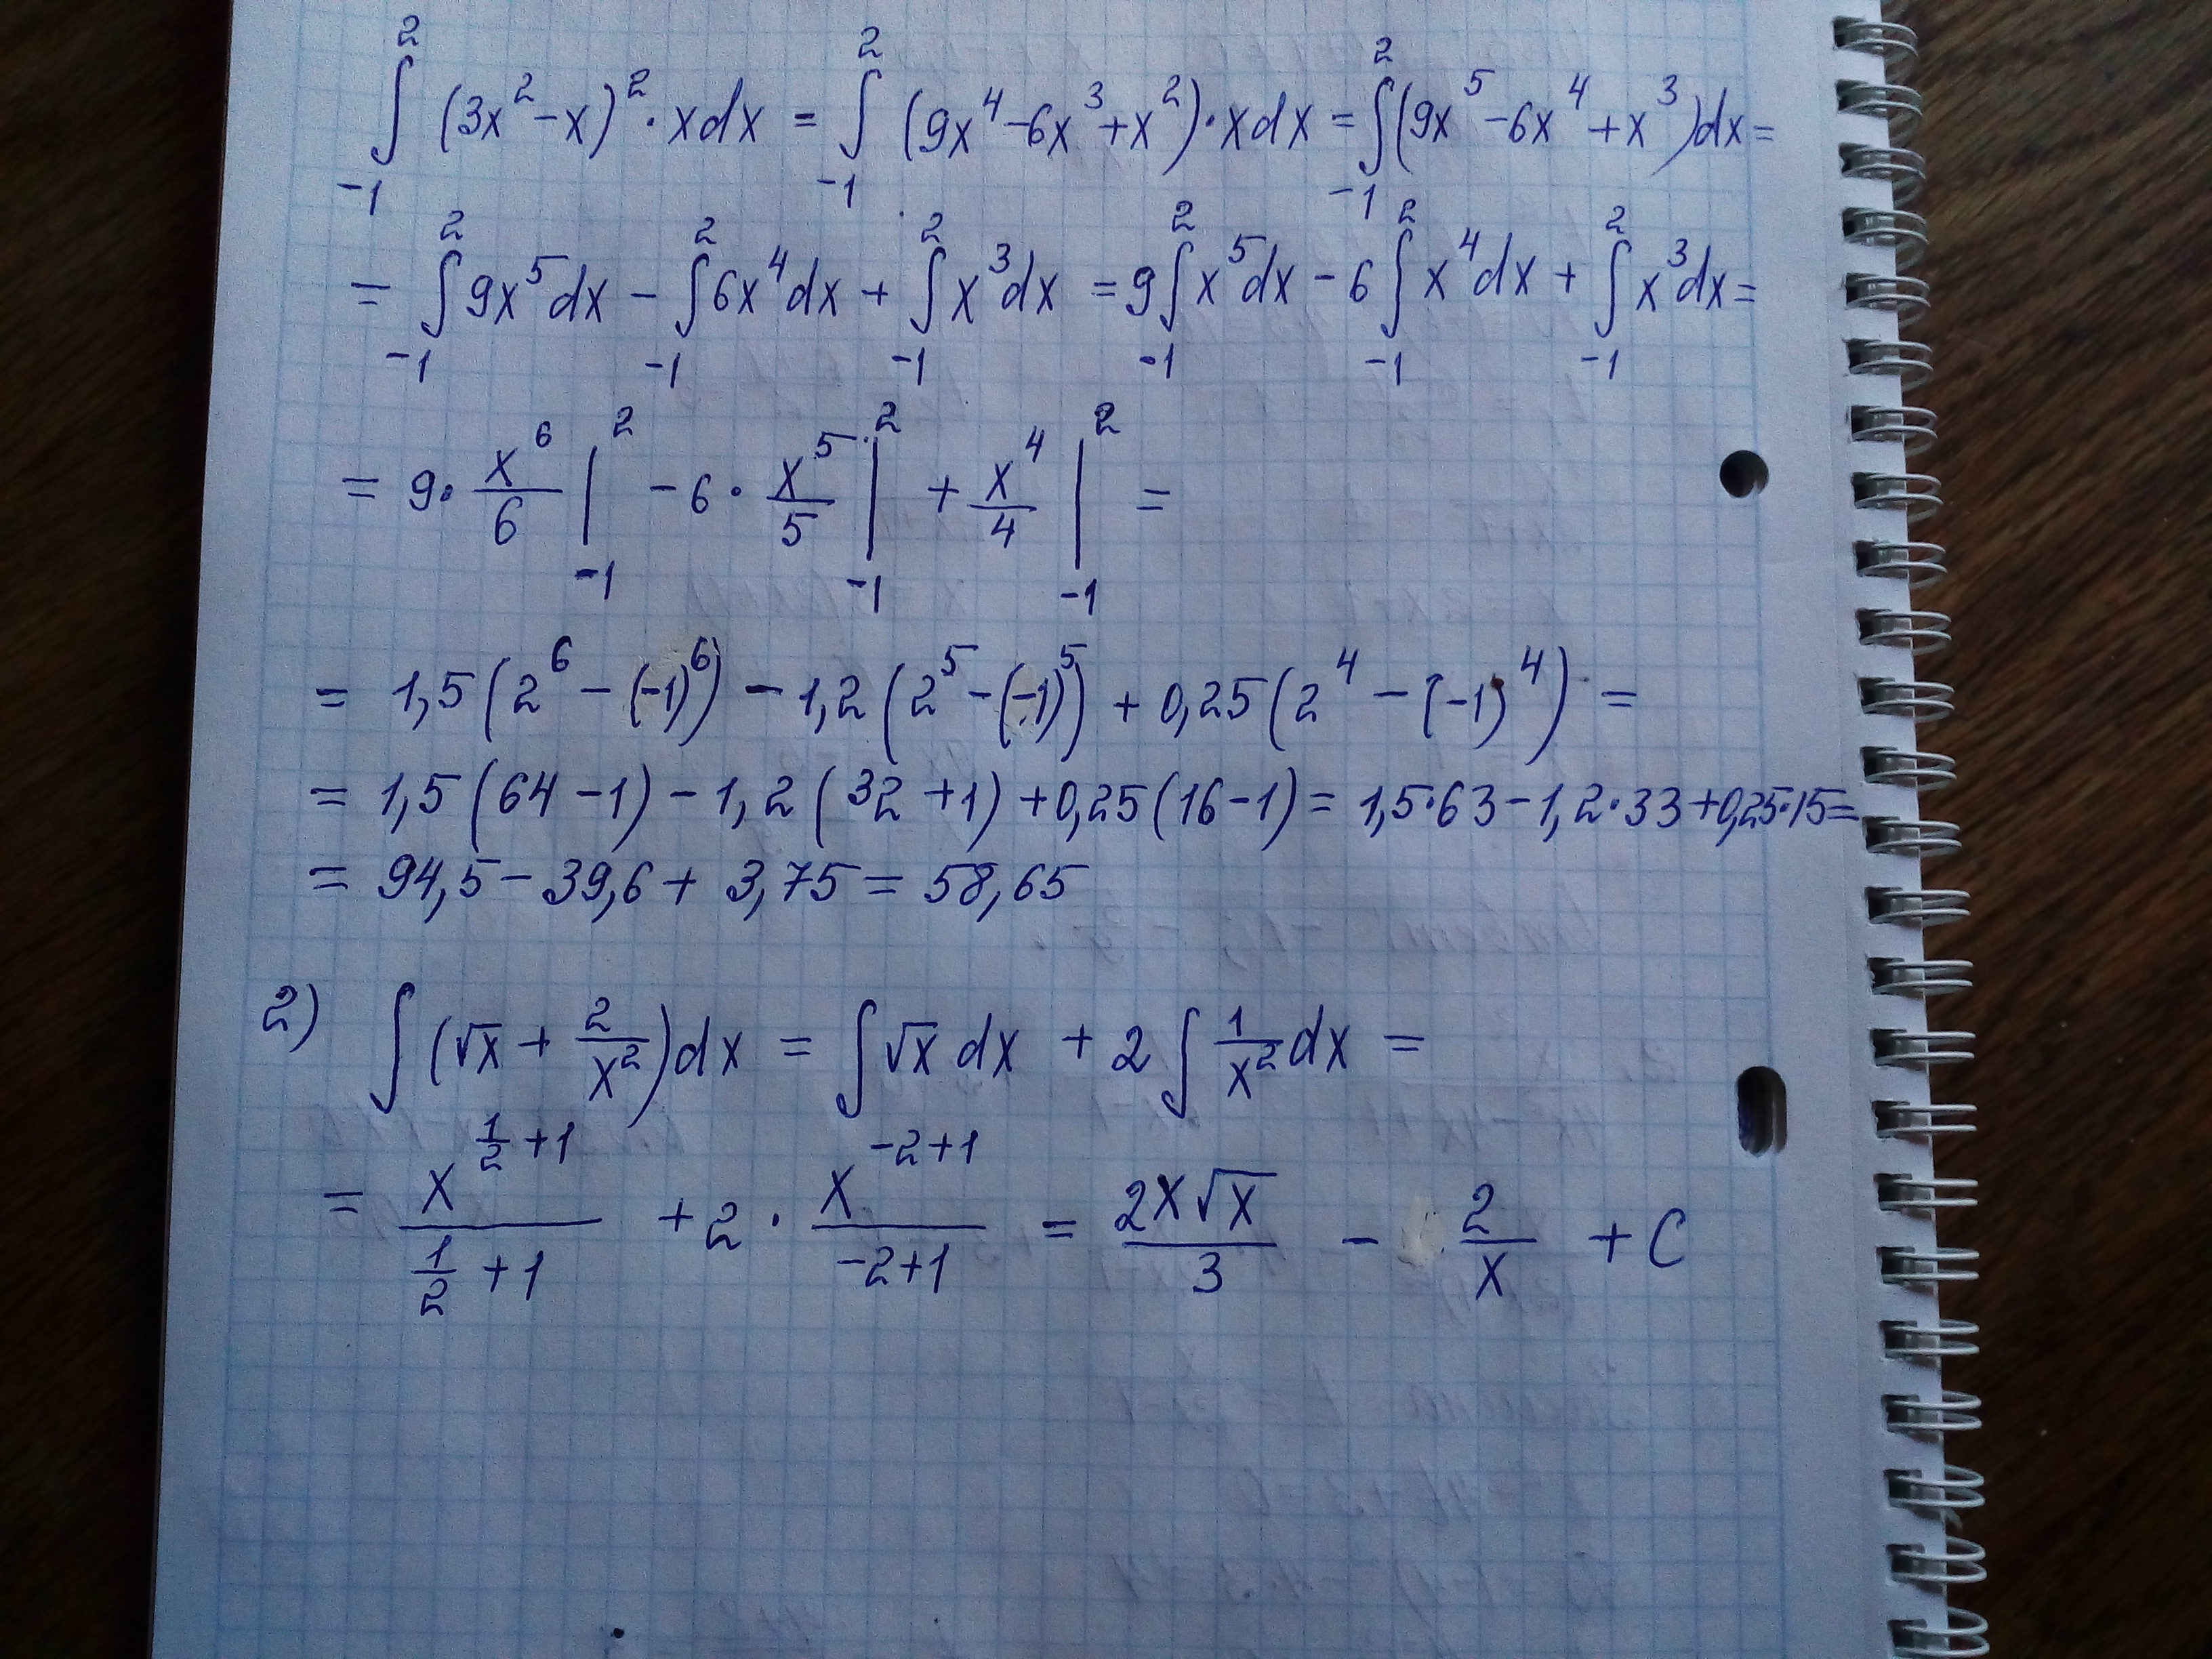 ∫₋₁² (3x² − x)² · x dx = ∫₋₁² (9x⁴ − 6x³ + x²) · x dx = ∫₋₁² (9x⁵ − 6x⁴ + x³) dx =
= ∫₋₁² 9x⁵ dx − ∫₋₁² 6x⁴ dx + ∫₋₁² x³ dx = 9 ∫₋₁² x⁵ dx − 6 ∫₋₁² x⁴ dx + ∫₋₁² x³ dx =
= 9 · x⁶/6 |₋₁² − 6 · x⁵/5 |₋₁² + x⁴/4 |₋₁² =
= 1,5 (2⁶ − (−1)⁶) − 1,2 (2⁵ − (−1)⁵) + 0,25 (2⁴ − (−1)⁴) =
= 1,5 (64 − 1) − 1,2 (32 + 1) + 0,25 (16 − 1) = 1,5 · 63 − 1,2 · 33 + 0,25 · 15 =
= 94,5 − 39,6 + 3,75 = 58,65
2) ∫ (√x + 2/x²) dx = ∫ √x dx + 2 ∫ 1/x² dx =
= x^(1/2 + 1) / (1/2 + 1) + 2 · x^(−2+1) / (−2+1) = 2x√x / 3 − 2/x + C